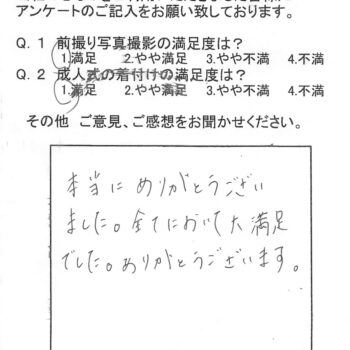 アンケートのご記入をお願い致しております。
Q.1 前撮り写真撮影の満足度は?
1.満足 2.やや満足 3.やや不満 4.不満
Q.2 成人式の着付けの満足度は?
1.満足 2.やや満足 3.やや不満 4.不満
その他 ご意見、ご感想をお聞かせください。
本当にありがとうござい
ました。全てにおいて大満足
でした。ありがとうございます。